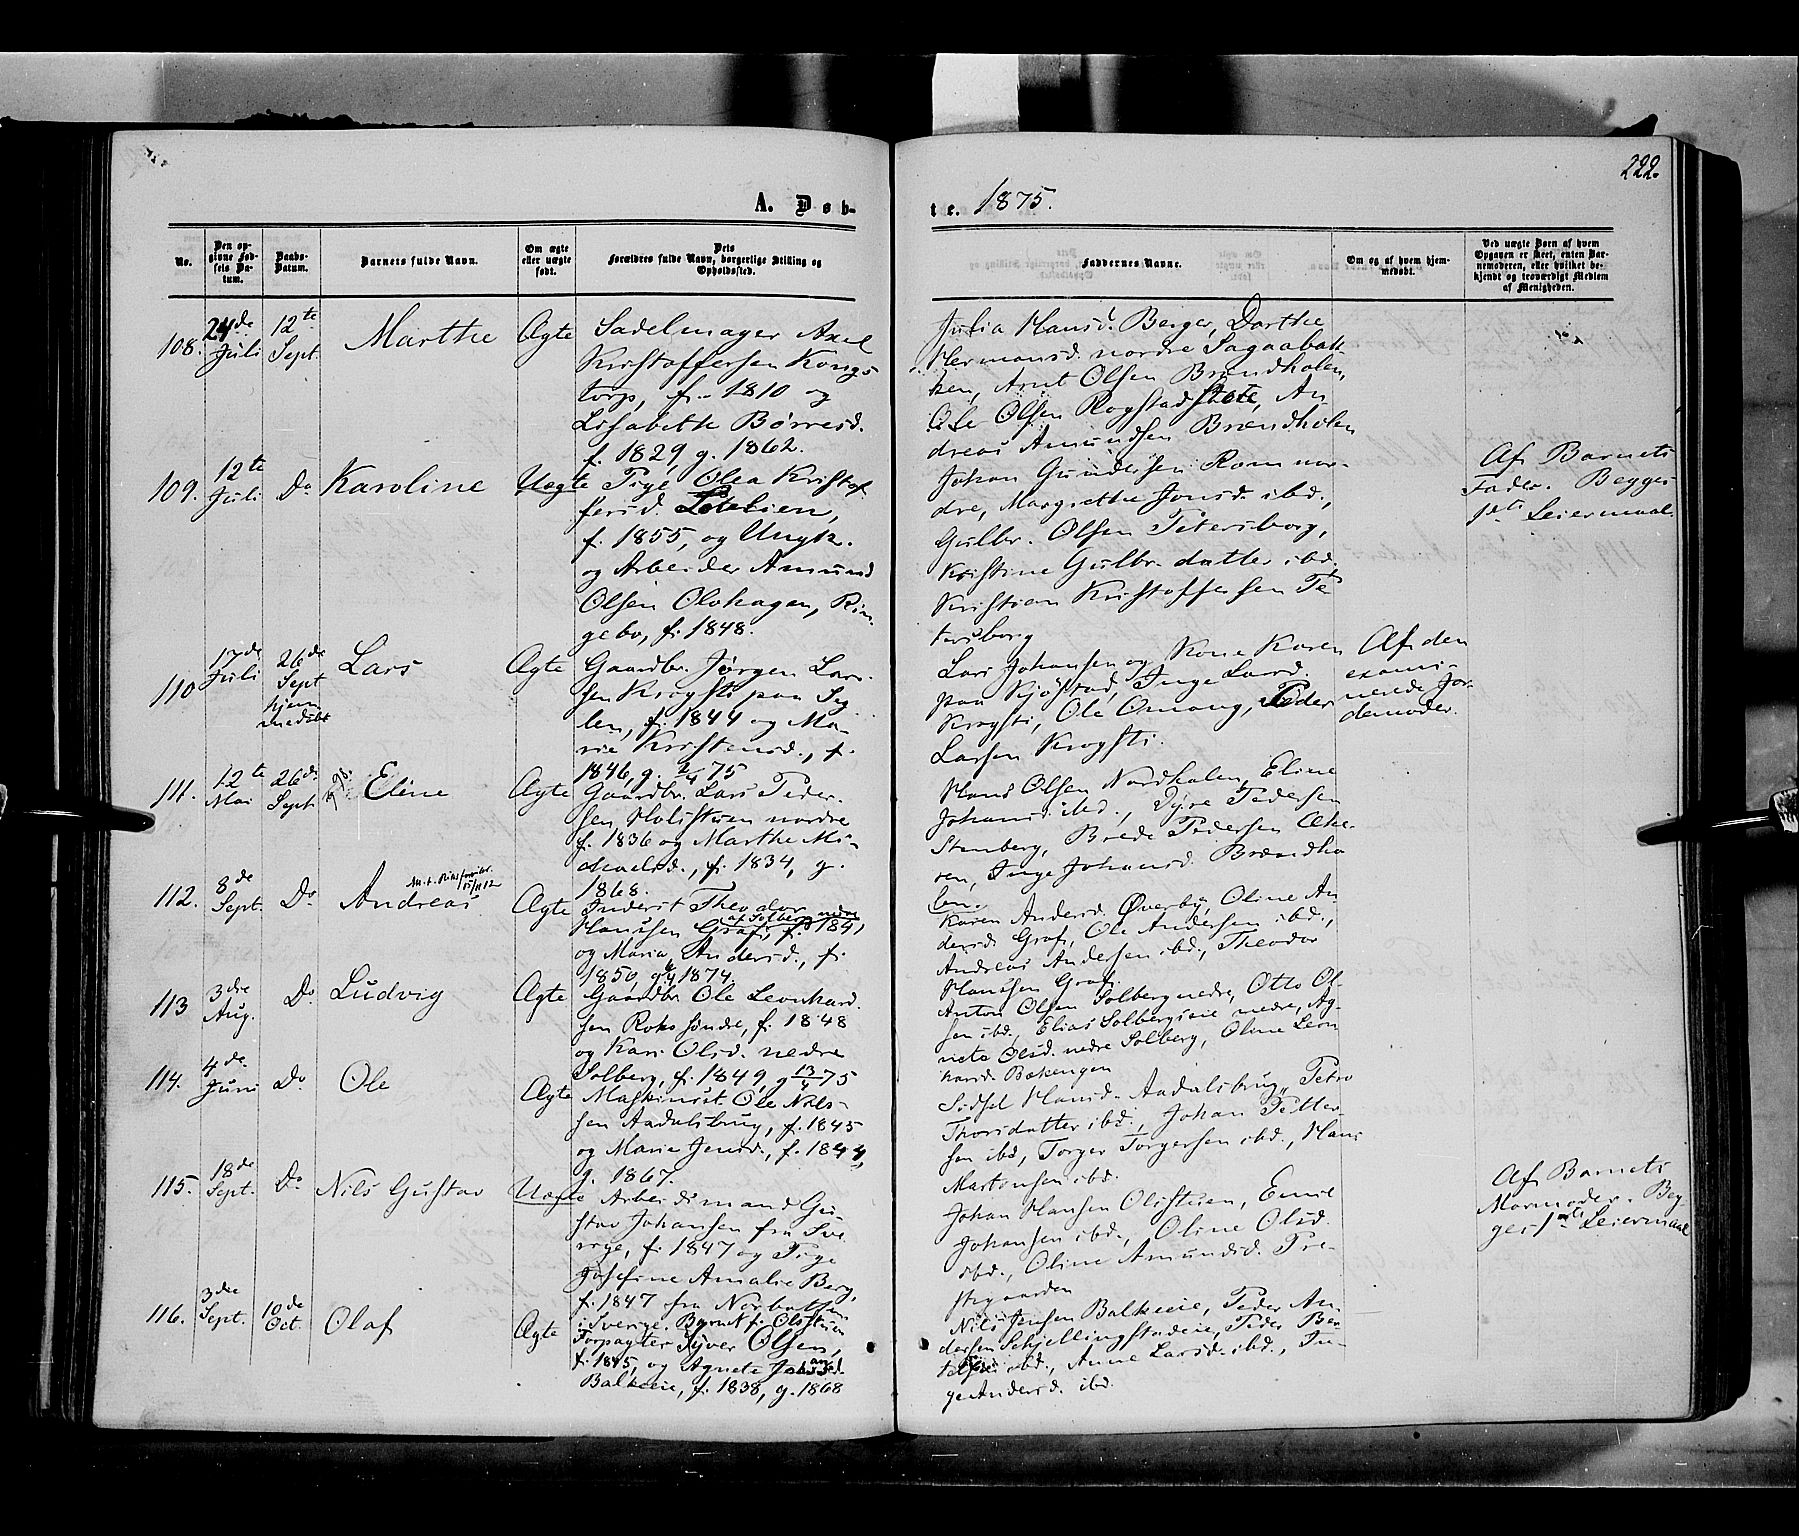 222.
A. Døb-
te. 1875.
No.
Den op-
givne Fød-
sels Da-
tum.
Daabs-
Datum.
Barnets fulde Navn.
Om ægte
eller uægte
født.
Dets
Forældres fulde Navn, borgerlige Stilling og
Opholdssted.
Faddernes Navne.
Om og af hvem hjem-
medøbt.
Ved uægte Børn af hvem
Opgaven er skeet, enten Bar-
nemoderen, eller hvilket be-
kjendt og troværdigt Medlem
af Menigheden.
108.
24de
Juli
12te
Sept.
Marthe
Ægte
Sadelmager Axel
Kristoffersen Kongs
torp, f. 1810 og
Lisabeth Børresd.
f. 1829, g. 1862.
Julia Hansd. Berger, Dorthe
Hermansd. nordre Sagaabak-
ken, Arnt Olsen Brændholen,
Ole Olsen Rogstad, An
dreas Amundsen Brændholen
109.
12te
Juli
Do
Karoline
Uægte
Pige Olea Kristof
fersd.
f. 1855, og Ungk.
og Arbeider Amund
Olsen Olohagen, Rin
gebo, f. 1848.
Johan Gundersen Rom nor-
dre, Margrethe Jonsd. ibd.,
Gulbr. Olsen Petersborg,
Kristine Gulbr. datter ibd.
Kristian Kristoffersen Pe
tersborg
Af Barnets
Fader. Begges
1ste Leiermaal.
110
17de
Juli
26de
Sept
hjem
medøbt
Lars
Ægte
Gaardbr. Jørgen Lars-
sen Krogsti paa Sy
len, f. 1844 og Ma-
rie Kristensd., f.
1846, g. 2/4 75
Lars Johansen og Kone Karen
paa Kjøstad, Inge Larsd.
Krogsti, Ole Omang, Peder
Larsen Krogsti.
Af den
exami-
nerede Jor-
demoder.
111.
12te
Mai
26de
Sept.
Eline
Ægte
Gaardbr. Lars Peder-
sen Holistuen nordre
f. 1836 og Marthe Mi-
chaelsd., f. 1834, g.
1868.
Hans Olsen Nordholen, Eline
Johansd. ibd., Syre Pedersen
Stenberg, Brede Pedersen Ake-
ren, Inge Johansd. Brændho
len.
112.
8de
Sept.
Do
Andreas
Ægte
Inderst Theodor
Hanssen Graf, f. 184
af Solberg nedre
og Maria Andersd., f.
1850, g. 1874.
Karen Andersd. Øverby, Oline An
dersd. Graf, Ole Andersen ibd.,
Andreas Andersen ibd., Theodor
Hanssen Graf.
113
3die
Aug.
Do
Ludvig
Ægte
Gaardbr. Ole Leonhard
sen Roko søndre, f. 1848
og Kari Olsd. nedre
Solberg, f. 1849, g 13/4 75
Anton Olsen Solberg nedre, Otto Ol-
sen ibd., Elias Solbergseie nedre, Ag-
nete Olsd. nedre Solberg, Oline Leon
hardsd. Bakengen
114.
4de
Juni
Do
Ole
Ægte
Maskinist Ole Nils-
sen Aadalsbrug, f. 1845
og Marie Jensd., f. 1844,
g. 1867.
Sidsel Hansd. Aadalsbrug, Petro
Thorsdatter ibd., Johan Petter-
sen ibd, Torger Torgersen ibd., Hans
Martensen ibd.
115.
18de
Sept.
Do
Nils Gustav
Uægte
Arbeidsmand Gu
stav Johansen fra Sve
rige, f. 1847 og Pige
Josefine Amalie Berg,
f. 1847 fra Norbotten
i Sverige. Barnet f. Olsstuen
Johan Hansen Olsstuen, Emil
Johansen ibd., Oline Olsd.
ibd., Oline Amundsd. Pre-
stegaarden
Af Barnets
Mormoder. Beg-
ges 1ste Leiermaal
116.
3die
Sept.
10de
Oct.
Olaf
Ægte
Forpagter Syver Olsen,
f. 1845, og Agnete Johansd.
Balkeeie, f. 1838, g. 1868
Nils Jensen Balkeeie, Peder An
dersen Schjellingstadeie, Peder Ber
telsen ibd., Anne Larsd. ibd., In-
ge Andersd. ibd.